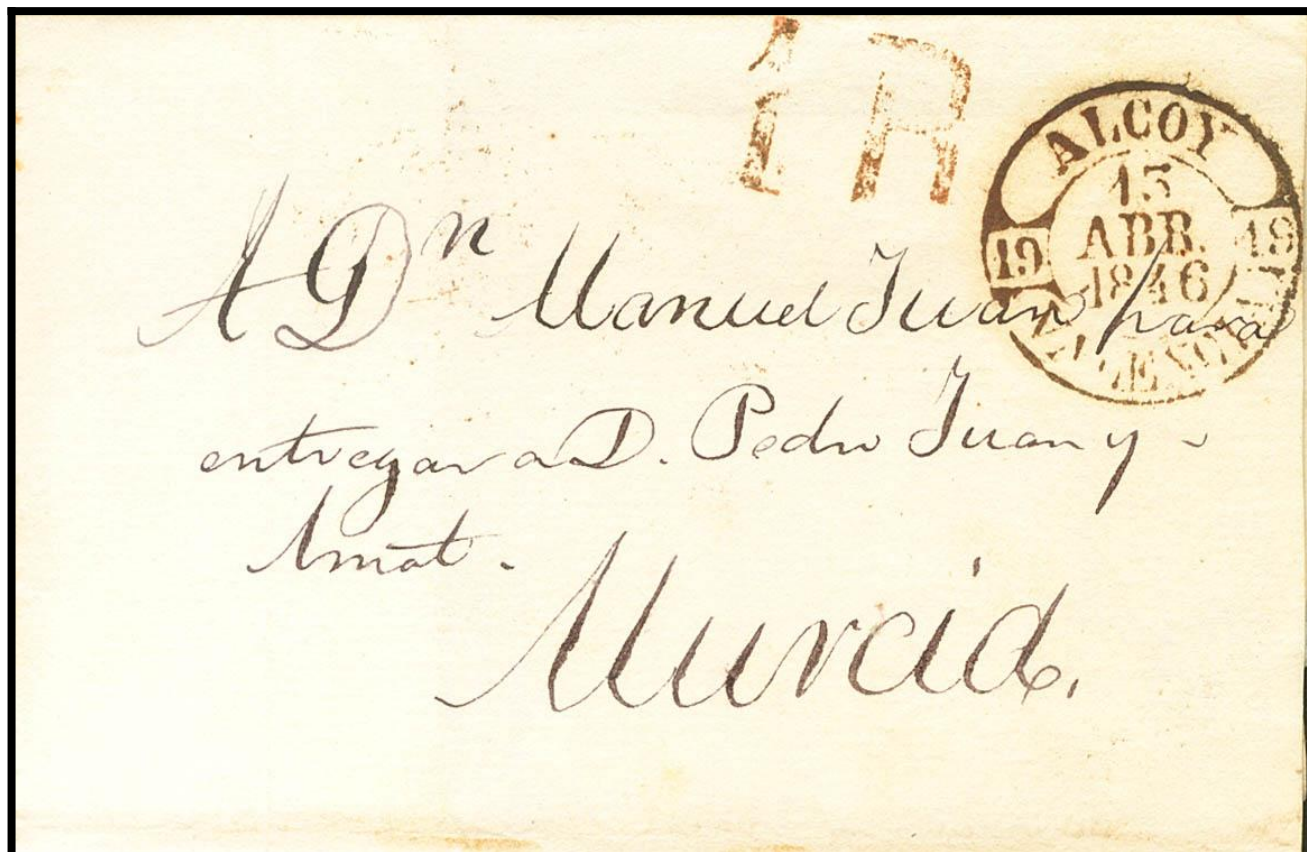 1R
ALCOY
13
ABR.
1846
19 19
VALENCIA
A Dn Manuel Juan para
entregar a D. Pedro Juan y
Amat.
Murcia.